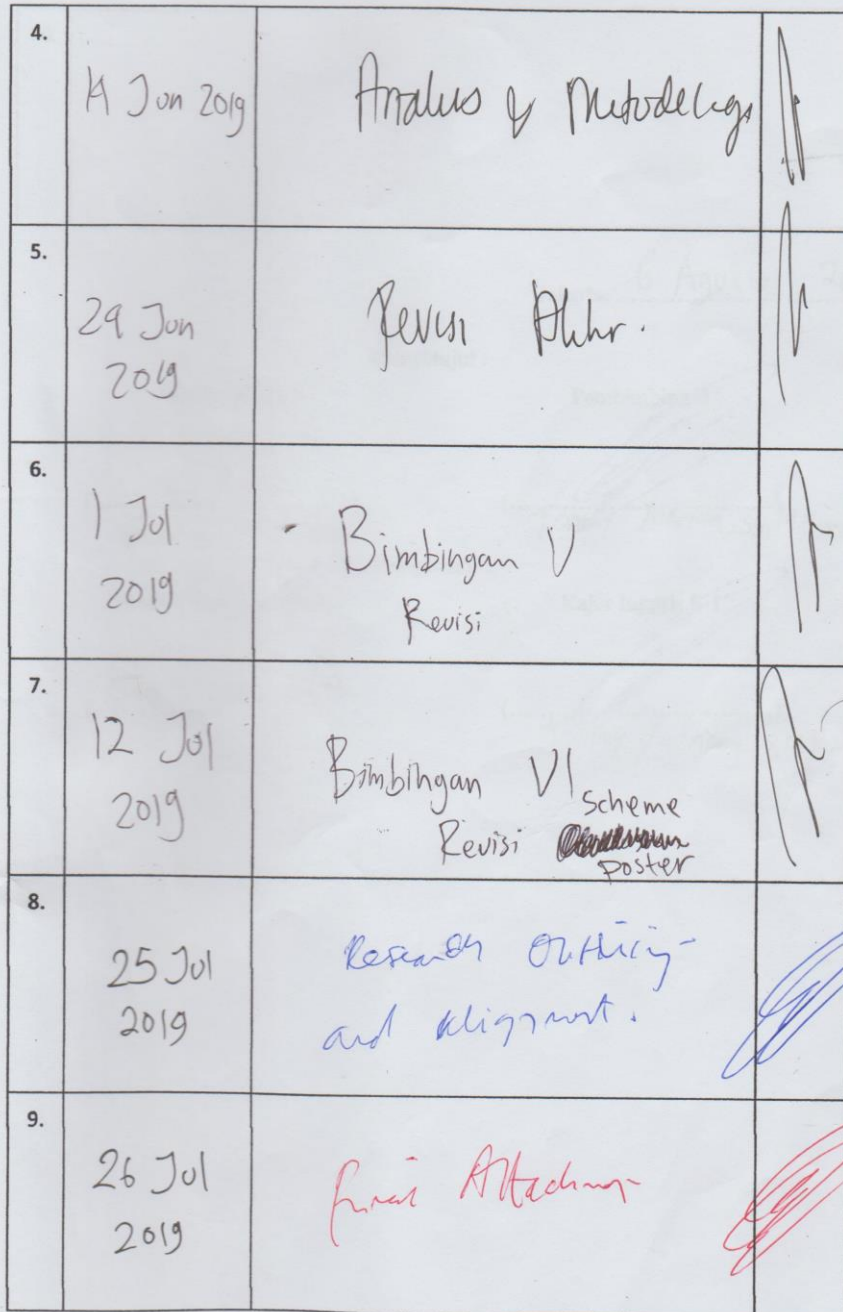 4.
14 Jun 2019
Analisis & Metodologi
5.
29 Jun
2019
Revisi Akhir.
6.
1 Jul
2019
Bimbingan V
Revisi
7.
12 Jul
2019
Bimbingan VI
scheme
Revisi
poster
8.
25 Jul
2019
Research Outlining
and alignment.
9.
26 Jul
2019
Final